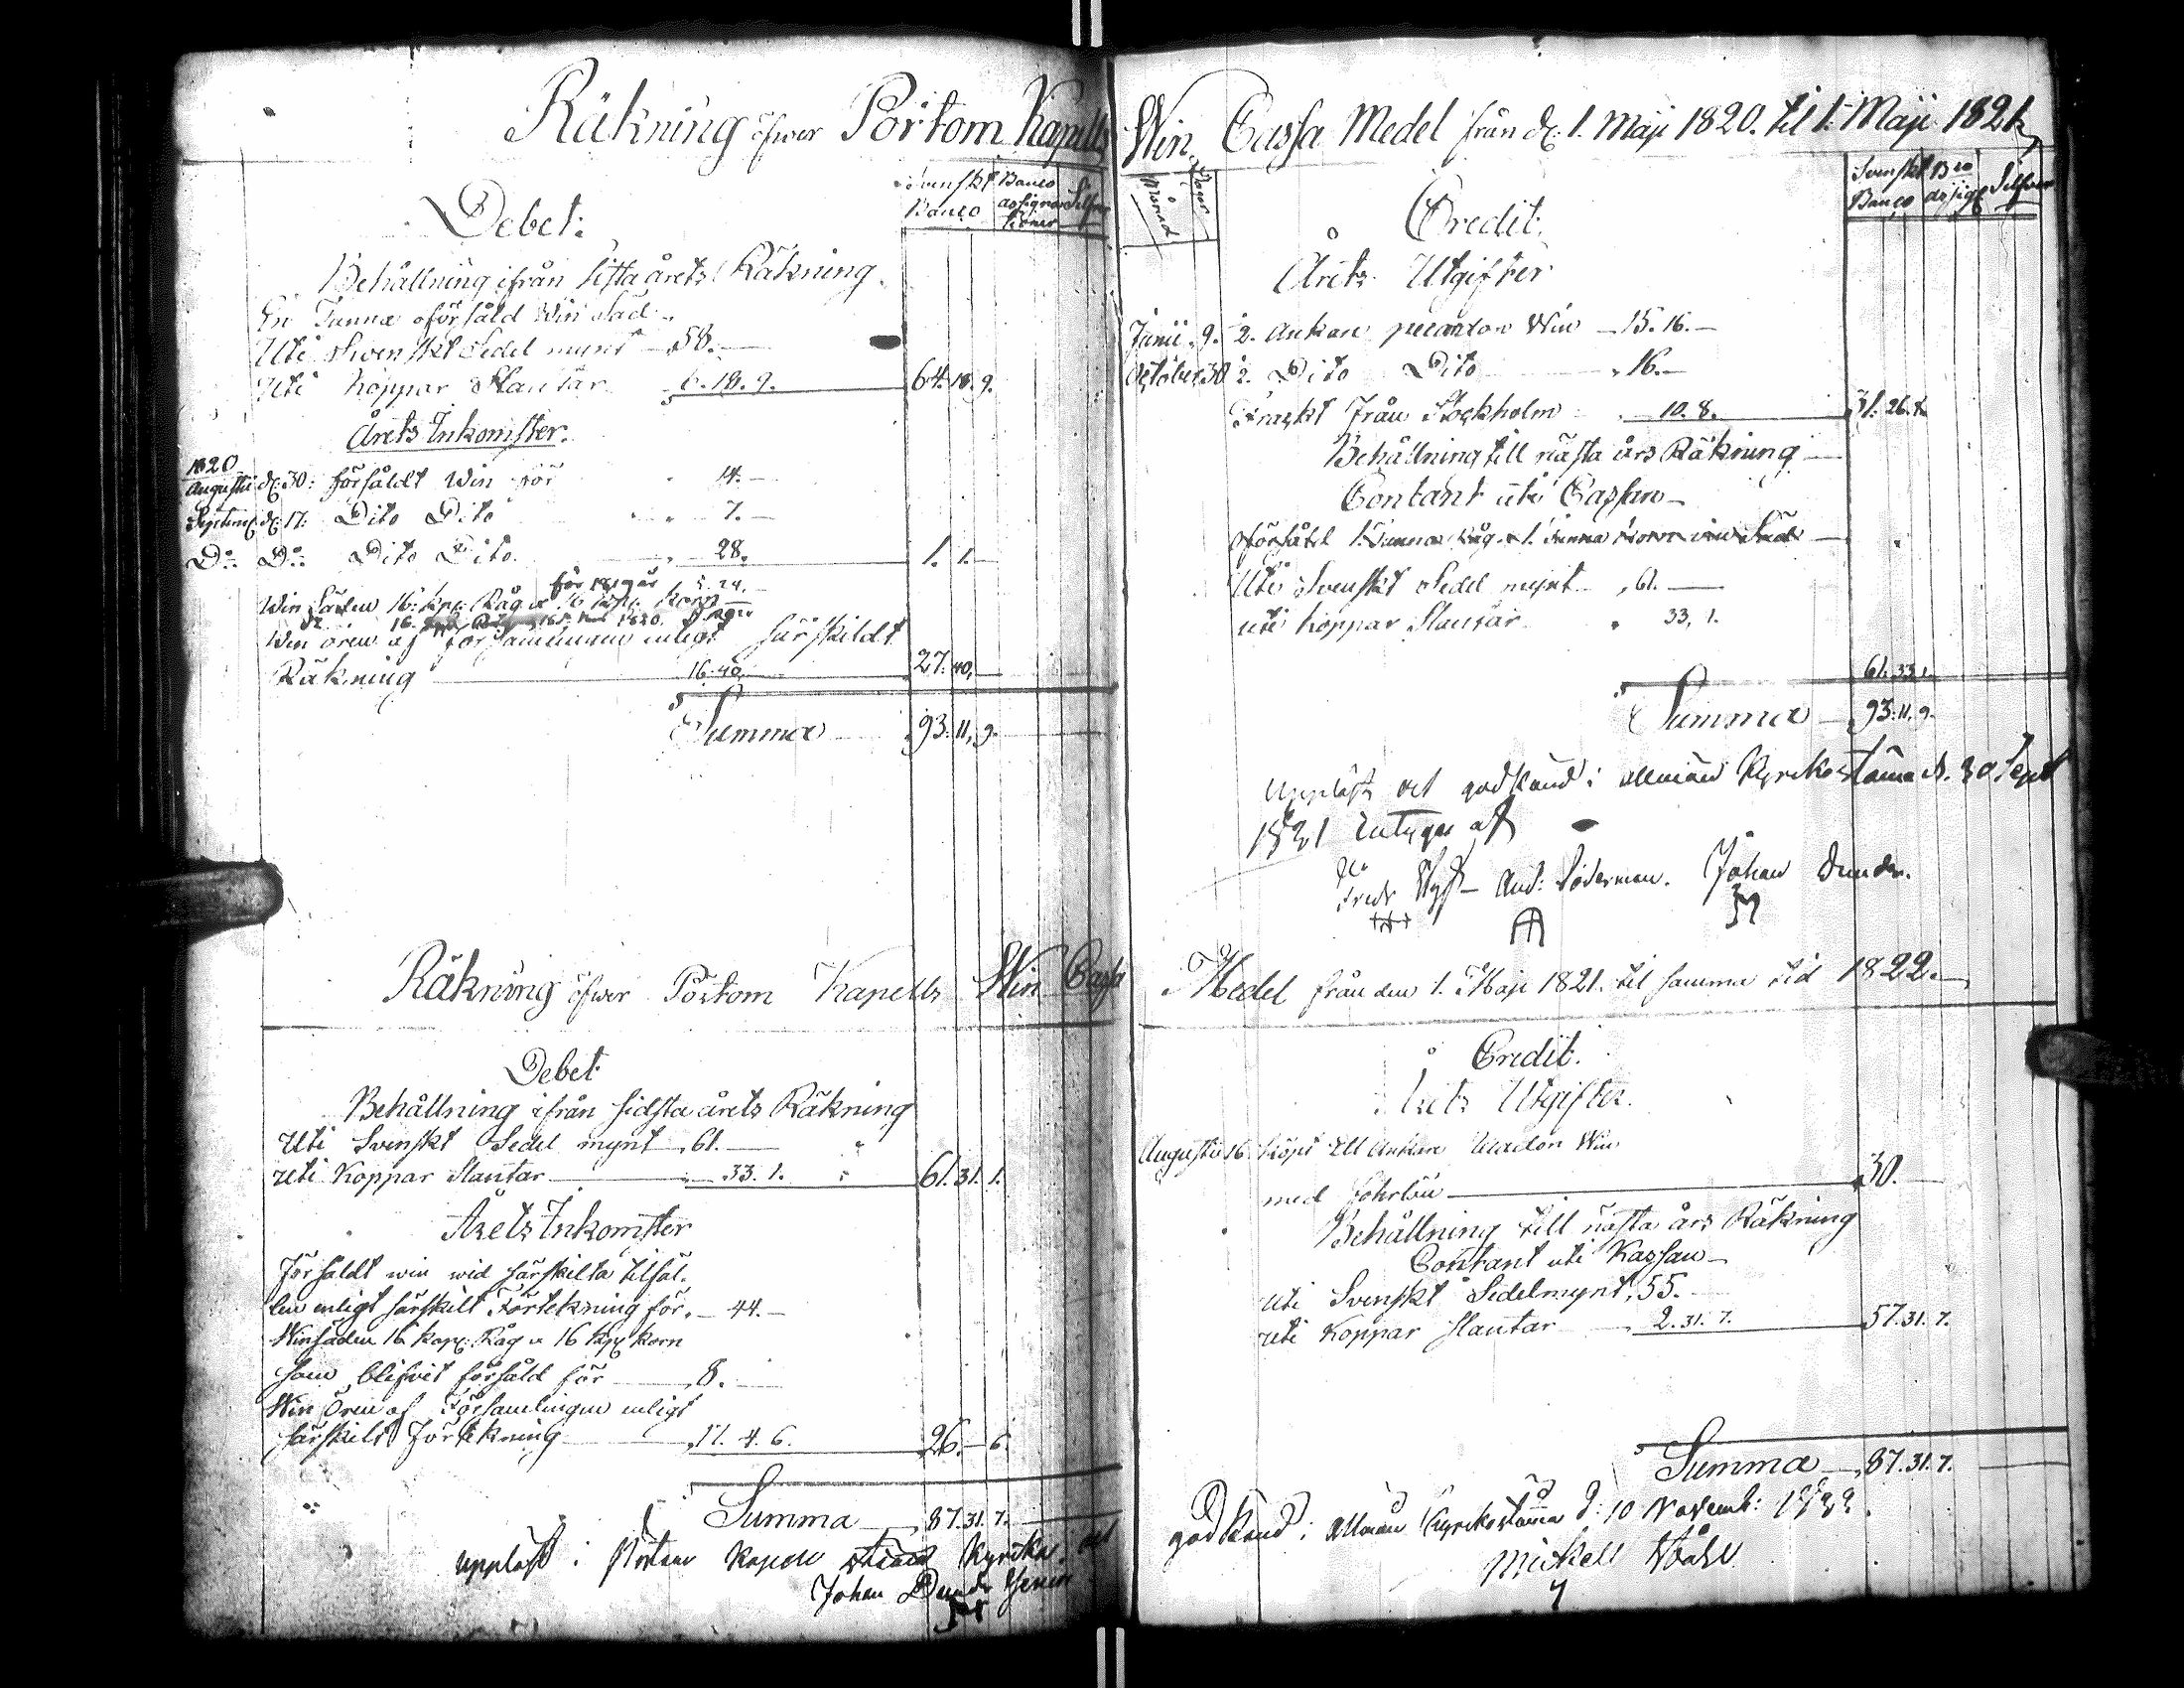 Räkning öfwer Pörtom Kapells
Debet:
Svenskt Banco
Banco assigna Silfver
tioner
Behållning ifrån sista årets Räkning
En Tunna oförsåld Win Säd
Uti Swenskt Sedel mynt 58. —
Uti Koppar Slantar 6. 18. 9. 64. 18. 9.
Årets Inkomster.
1820
Augusti d. 30: försåldt Win för 14. —
Septemb. d. 17: Dito Dito 7. —
Do: Do: Dito Dito 28. 1. 1. —
för 1819 år 5. 24. —
Win Säden 16: kpr: Råg o 16 kpr: korn
16. 1820.
Win ören af församlingen enligt särskildt
Räkning 16. 40. 27. 40. —
Summa 93. 11. 9.
Räkning öfwer Pörtom Kapells Win Cassa
Debet
Behållning ifrån sidsta årets Räkning
Uti Svenskt Sedel mynt 61. —
Uti Koppar Slantar 33. 1. 61. 31. 1.
Årets Inkomster
Försåldt win wid särskilta tilfäl.
len enligt särskilt Förtekning för. 44. —
Winsäden 16 kap: Råg o 16 kap korn
som blifvit försåld för 8. —
Win Ören af Församlingen enligt
särskilt Förtekning 17. 4. 6. 26. — 6.
Summa 87. 31. 7.
uppläst i Kyrka
Johan
Win Cassa Medel från d. 1. Maji 1820. til 1. Maji 1821.
Månad Dagar
Credit.
Svenskt Bco
Banco assig Silfver
Årets Utgifter
Junii 9. 2. Ankare Win 15. 16. —
October 30 2. Dito Dito 16. —
Frackt från Stockholm 10. 8. 31. 26. 8.
Behållning till nästa års Räkning
Contant uti Cassan —
oförsåld 1. Tunna Råg o 1. Tunna Korn win Säd
Uti Svenskt Sedel mynt 61. —
uti Koppar Slantar 33. 1.
61. 33. 1.
Summa 93. 11. 9.
Uppläst och godkänd i allmän Kyrkostämma d. 30 Sept
1821 intygar af
And: Söderman. Johan
Medel från den 1. Maji 1821. til samma tid 1822. —
Credit.
Årets Utgifter.
Augusti 16 köpt Ankare Win
med 30. —
Behållning till nästa års Räkning
Contant uti Kassan —
Uti Svenskt Sedelmynt, 55. —
Uti Koppar slantar 2. 31. 7. 57. 31. 7.
Summa 87. 31. 7.
godkänd i Allmän Kyrkostämma d: 10 Novemb: 1822.
Mickell